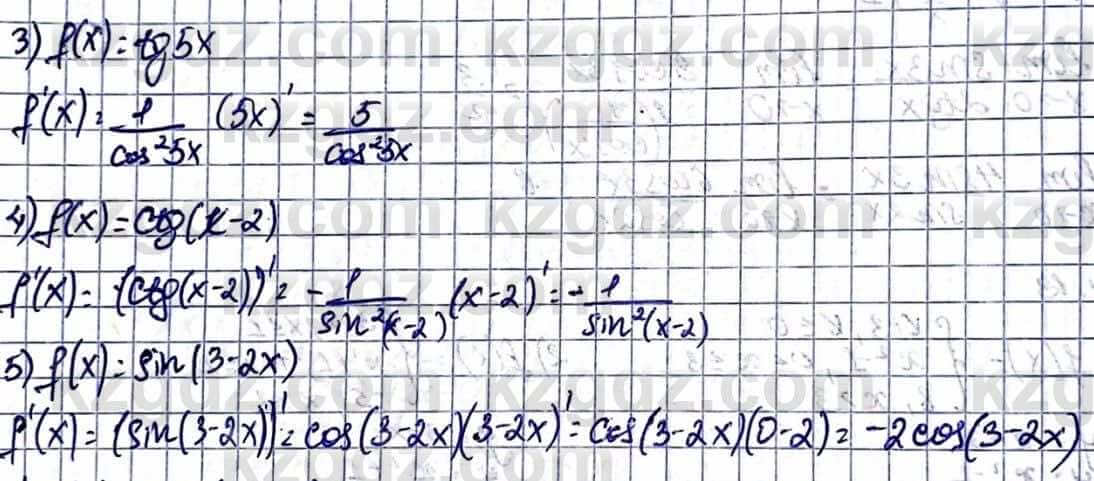 3) f(x) = tg 5x
f'(x) = 1/cos²5x (5x)' = 5/cos²5x
4) f(x) = ctg(x-2)
f'(x) = (ctg(x-2))' = -1/sin²(x-2) (x-2)' = -1/sin²(x-2)
5) f(x) = sin(3-2x)
f'(x) = (sin(3-2x))' = cos(3-2x)(3-2x)' = cos(3-2x)(0-2) = -2cos(3-2x)
kzgdz.com